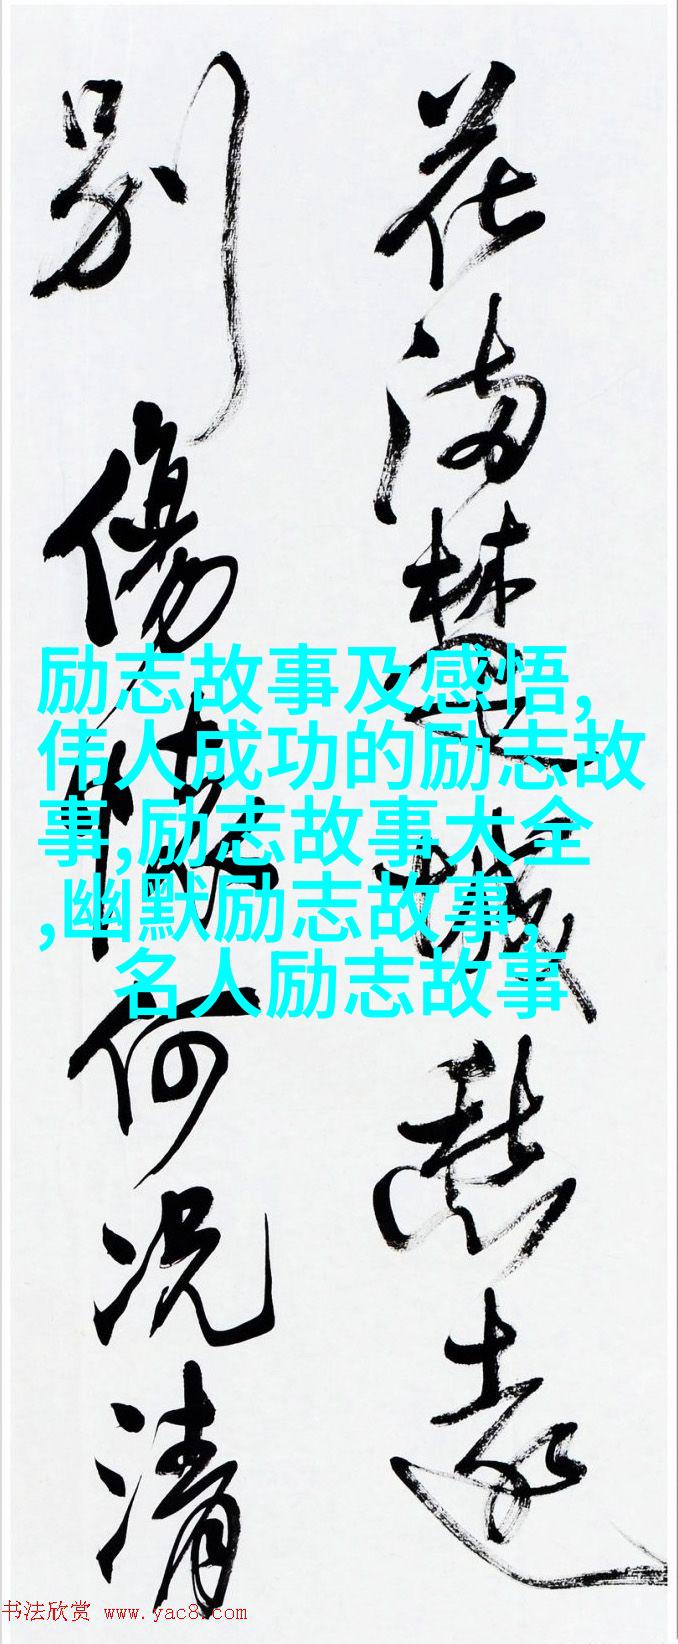 花满楚城愁远
别伤情何况清
励志故事及感悟,
伟人成功的励志故
事,励志故事大全
,幽默励志故事,
名人励志故事
书法欣赏 www.yac8.com